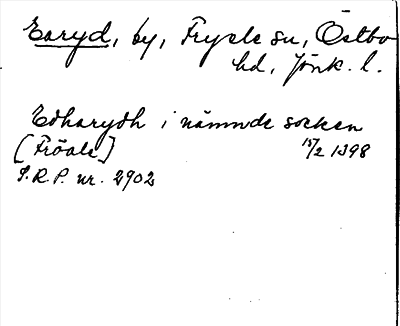 Earyd, by, Fryele sn, Östbo
hd, Jönk. l.
Edharydh i nämnde socken
[Fröale] 15/2 1398
S.R.P. nr. 2902